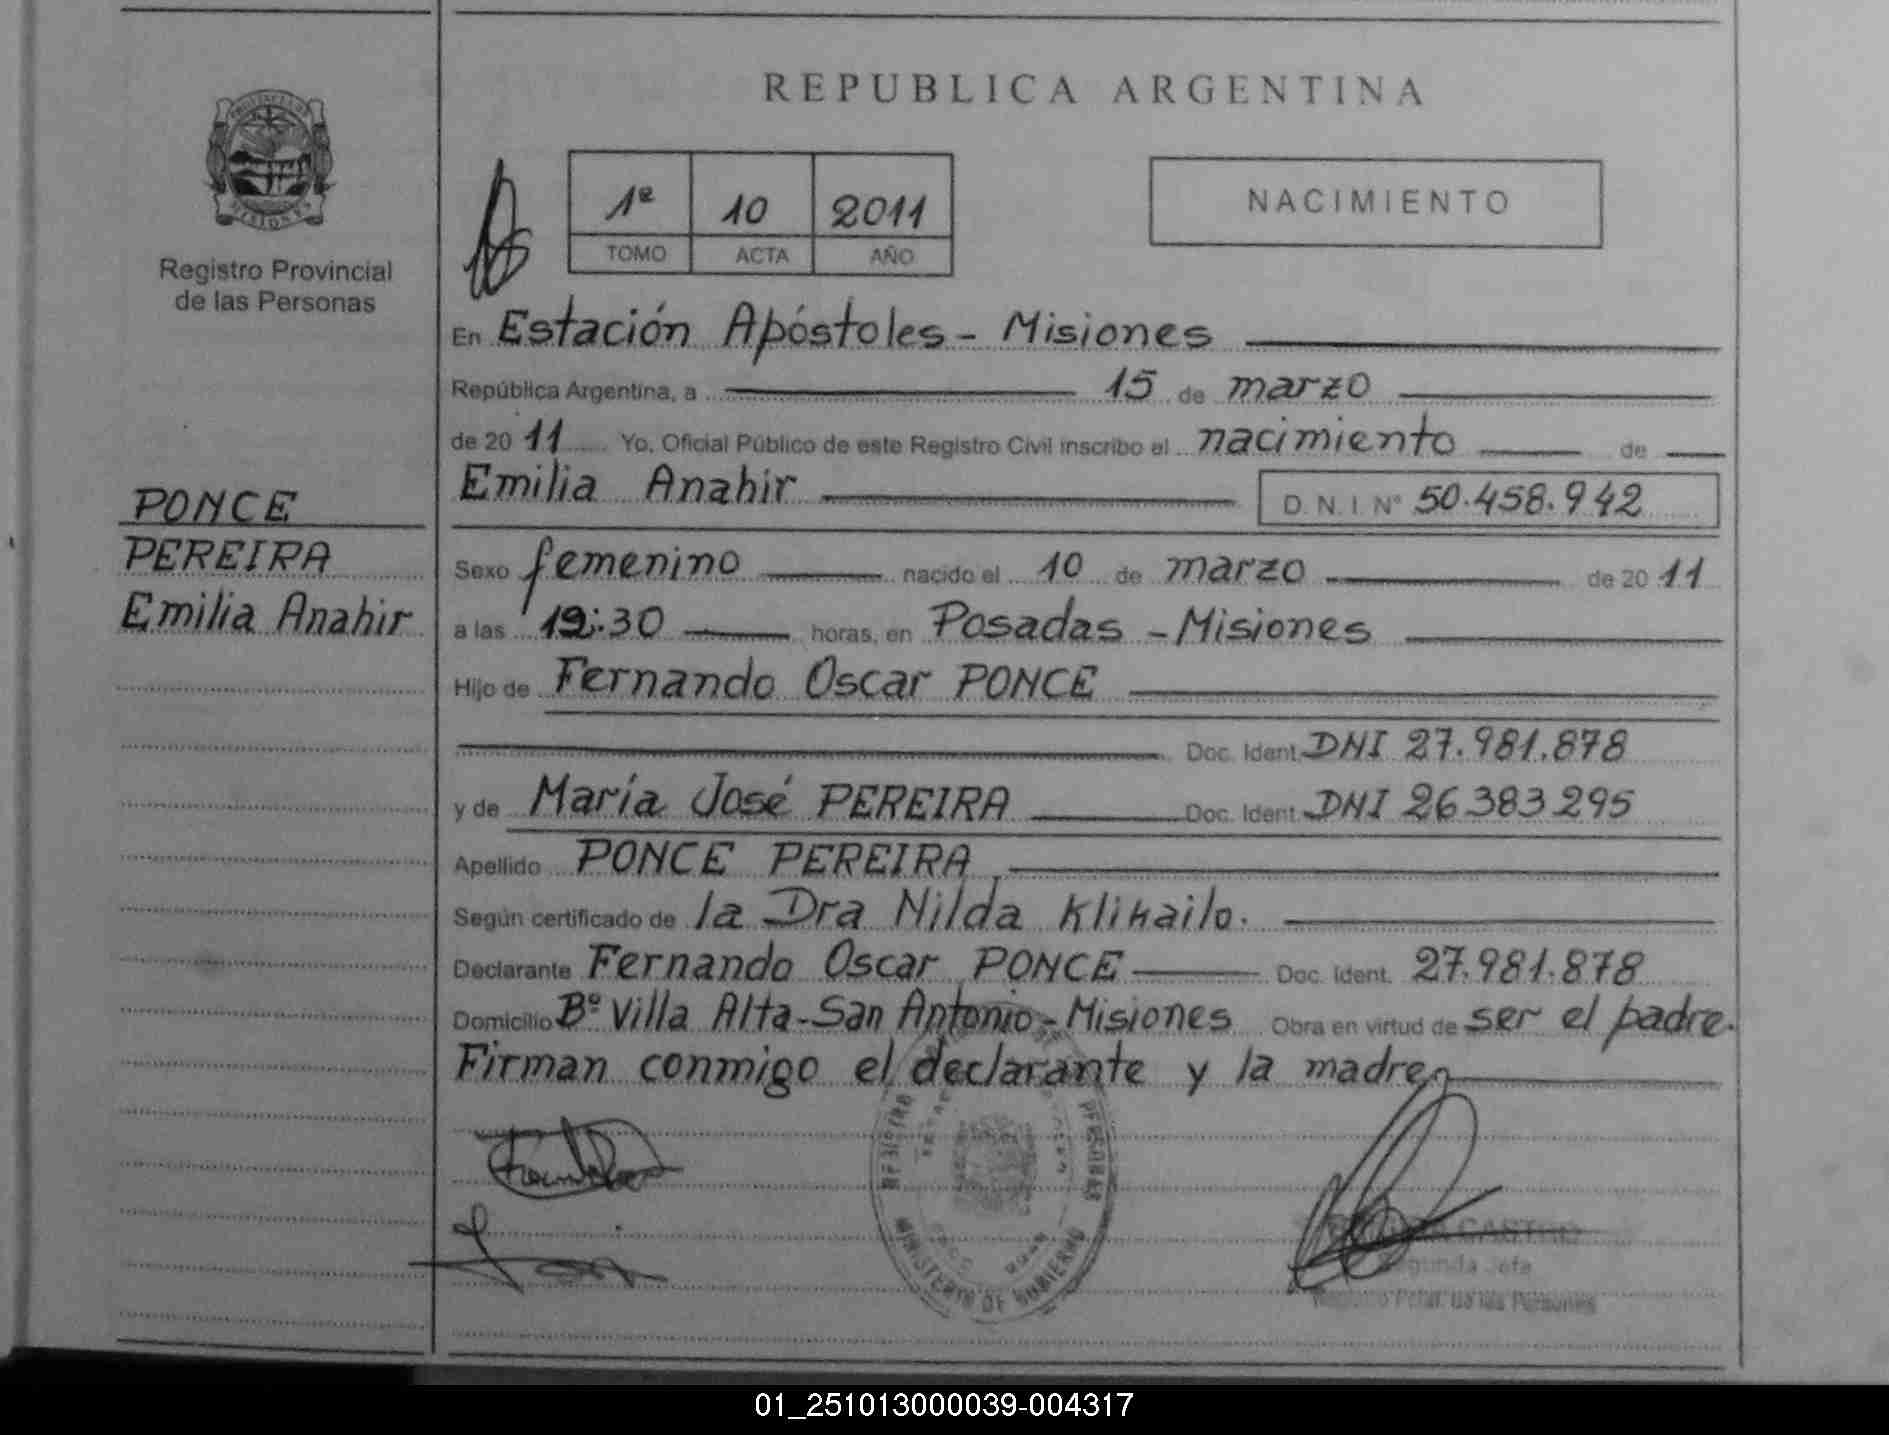 REPUBLICA ARGENTINA
PROVINCIA DE
MISIONES
Registro Provincial
de las Personas
1º 10 2011
TOMO ACTA AÑO
NACIMIENTO
En Estación Apóstoles - Misiones
República Argentina, a 15 de marzo
de 2011 Yo, Oficial Público de este Registro Civil inscribo el nacimiento de
Emilia Anahir D. N. I. Nº 50.458.942
PONCE
PEREIRA
Emilia Anahir
Sexo femenino nacido el 10 de marzo de 2011
a las :30 horas, en Posadas - Misiones
Hijo de Fernando Oscar PONCE
Doc. Ident. DNI 27.981.878
y de María José PEREIRA Doc. Ident. DNI 26.383.295
Apellido PONCE PEREIRA
Según certificado de la Dra Nilda
Declarante Fernando Oscar PONCE Doc. Ident. 27.981.878
Domicilio Bº Villa Alta - San Antonio - Misiones Obra en virtud de ser el padre.
Firman conmigo el declarante y la madre
MINISTERIO DE GOBIERNO
CASTRO
Segunda Jefa
de las Personas
01_251013000039-004317